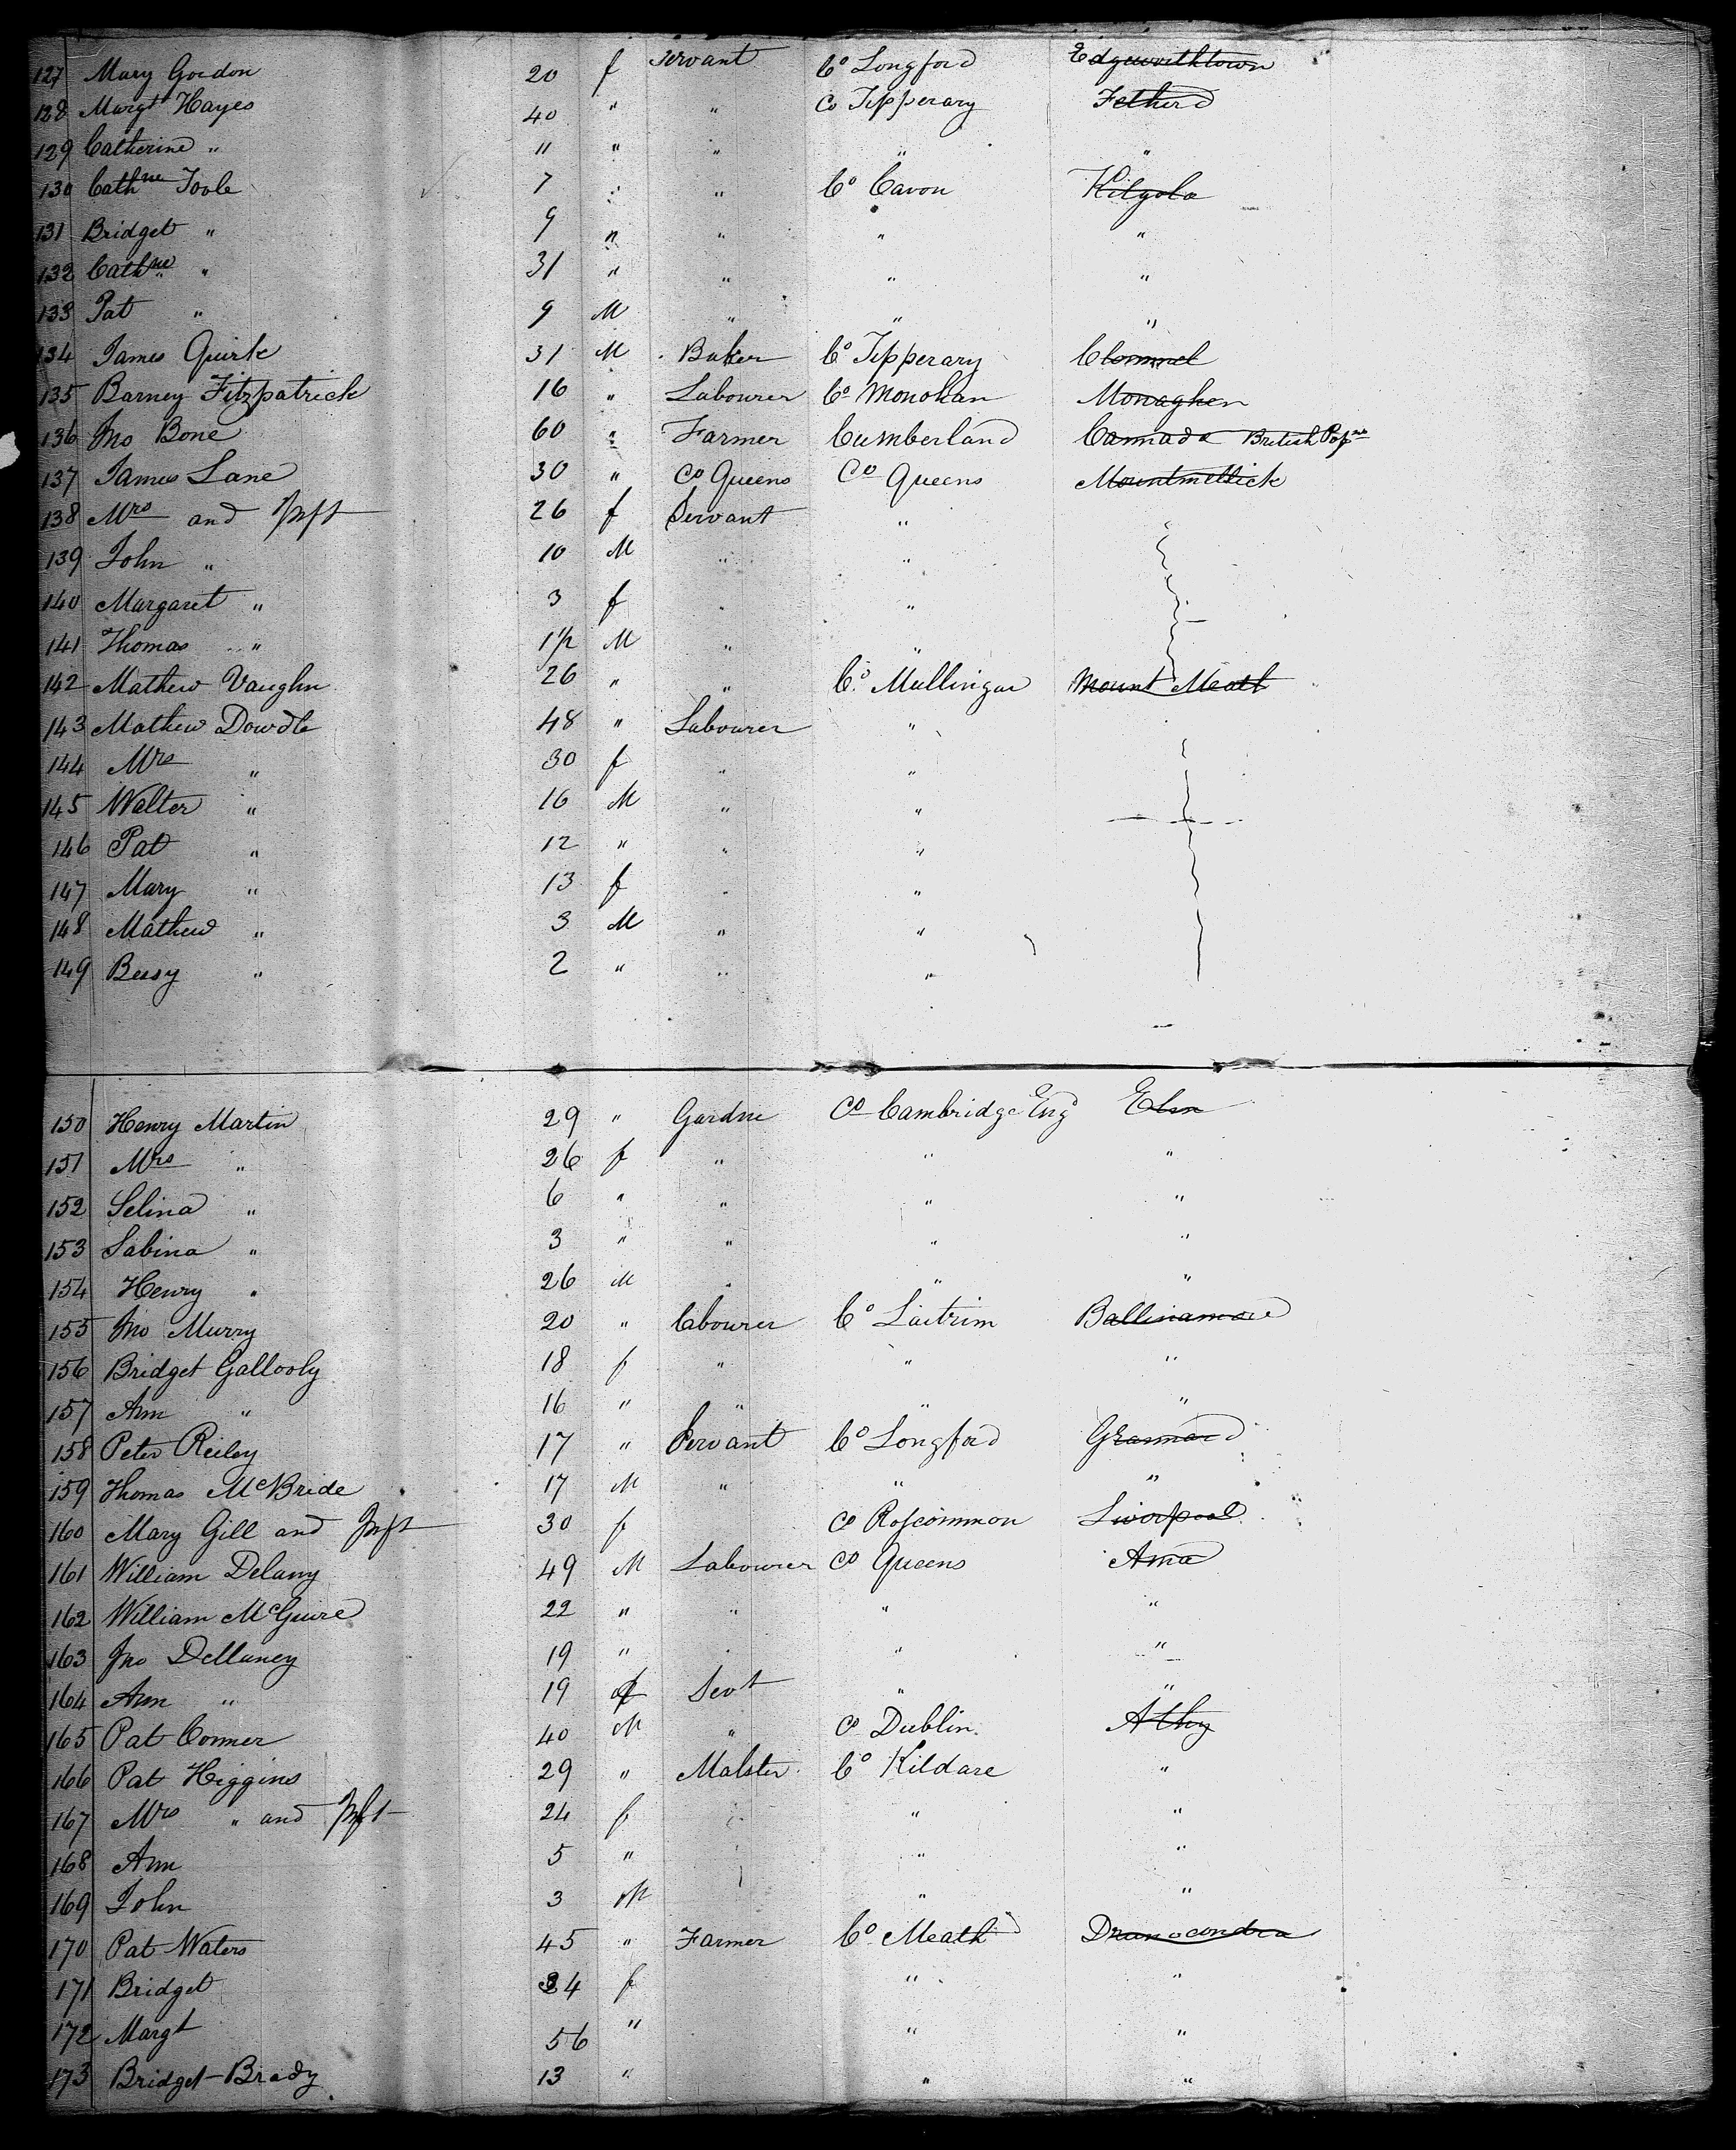 127 Mary Gordon 20 f Servant Co Longford Edgeworthtown
128 Margt Hayes 40 " " Co Tipperary Fetherd
129 Catherine " 11 " " " "
130 Cathne Toole 7 " " Co Cavon Kilgola
131 Bridget " 9 " " " "
132 Cathne " 31 " " " "
133 Pat " 9 M " " "
134 James Quirk 31 M Baker Co Tipperary Clommel
135 Barney Fitzpatrick 16 " Labourer Co Monohan Monaghen
136 Jno Bone 60 " Farmer Cumberland Cannada British
137 James Lane 30 " Co Queens Co Queens Mountmellick
138 Mrs and Inft 26 f Servant "
139 John " 10 M " "
140 Margaret " 3 f " "
141 Thomas " 1 1/2 M " "
142 Mathew Vaughn 26 " " Co Mullingar Mount Meath
143 Mathew Dowdle 48 " Labourer "
144 Mrs " 30 f " "
145 Walter " 16 M " "
146 Pat " 12 " " "
147 Mary " 13 f " "
148 Mathew " 3 M " "
149 Bessy " 2 " " "
150 Henry Martin 29 " Gardne Co Cambridge Eng Elm
151 Mrs " 26 f " " "
152 Selina " 6 " " " "
153 Sabina " 3 " " " "
154 Henry " 26 M " " "
155 Jno Murry 20 " Labourer Co Laitrim Ballinamore
156 Bridget Gallooly 18 f " " "
157 Ann " 16 " " " "
158 Peter Reiley 17 " Servant Co Longford Grannard
159 Thomas McBride 17 M " " "
160 Mary Gill and Inft 30 f Co Roscommon Liverpool
161 William Delany 49 M Labourer Co Queens Ama
162 William McGuire 22 " " " "
163 Jno Dellaney 19 " " " "
164 Ann " 19 f Servt " "
165 Pat Conner 40 M " Co Dublin Athy
166 Pat Higgins 29 " Malster Co Kildare "
167 Mrs " and Inft 24 f " "
168 Ann 5 " " "
169 John 3 M " "
170 Pat Waters 45 " Farmer Co Meath Drumcondra
171 Bridget 34 f " "
172 Margt 56 " " "
173 Bridget Brady 13 " " "